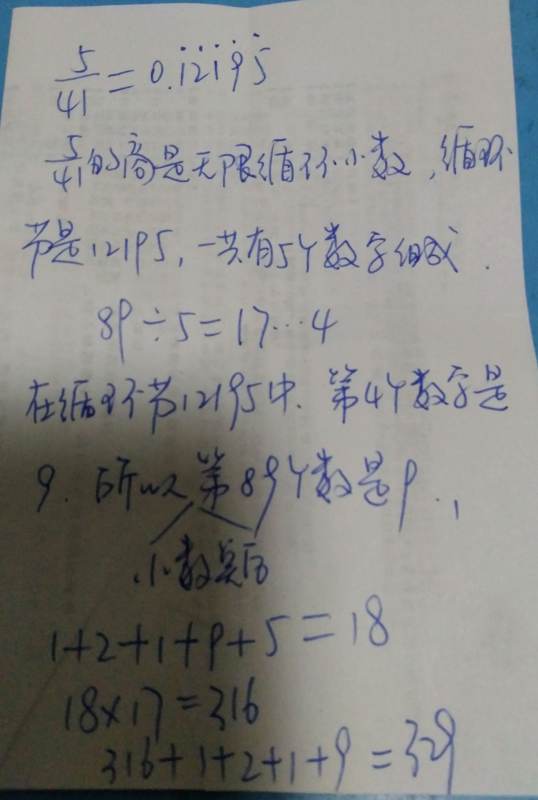 5/41 = 0.1̇2̇1̇9̇5̇
5/41的商是无限循环小数,循环
节是12195,一共有5个数字组成.
89÷5=17…4
在循环节12195中.第4个数字是
9.所以第89个数是9.
小数点后
1+2+1+9+5=18
18×17=316
316+1+2+1+9=329